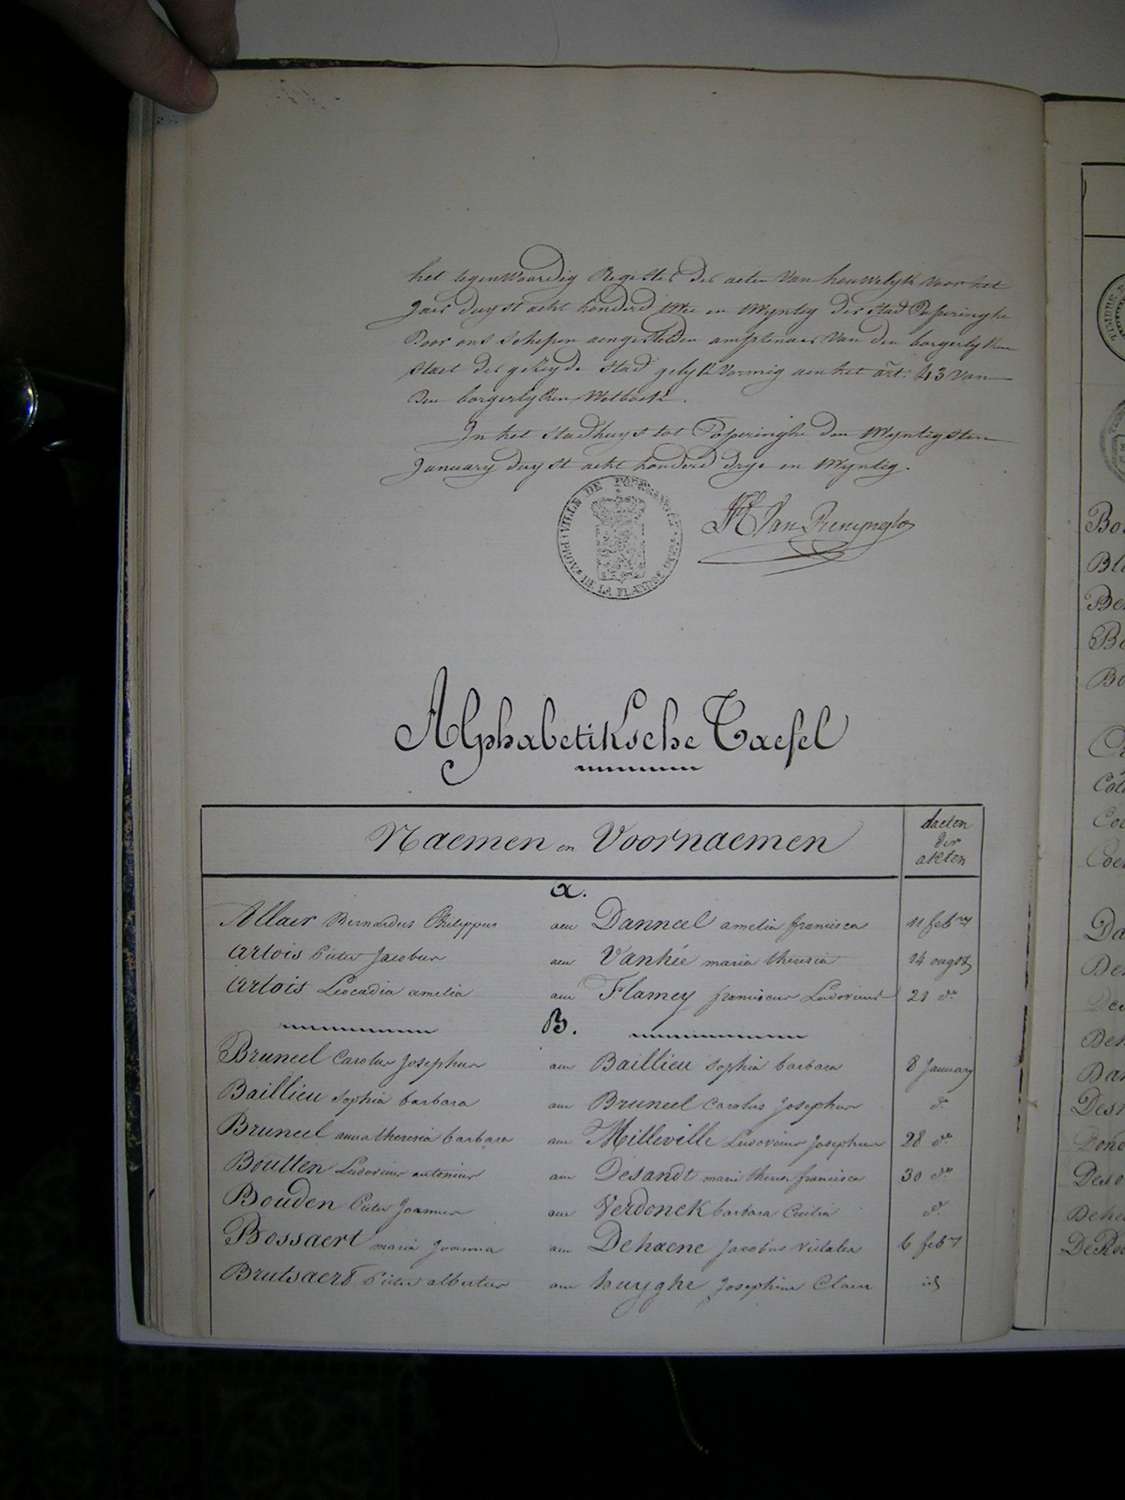 het tegenwoordig Register der acten van houwelyk voor het
Jaer duyst acht honderd twee en twyntig der stad Poperinghe
Door ons Schepen aengestelden amptenaer van den borgerlyken
staet der gezeyde stad gelykvormig aen het art: 43 van
den borgerlyken Wetboek.
In het stadhuys tot Poperinghe den twyntigsten
January duyst acht honderd drye en twyntig.
VILLE DE POPERINGHE
PROV: DE LA FLANDRE OCCID:
Van Renynghe
Alphabetiksche Taefel
Naemen en Voornaemen
daeten
der
akten
a.
Allaer Bernardus Philippus aen Danneel amelia francisca 11 febry
Artois Pieter Jacobus aen Vanhée maria theresia 14 ougst
Artois Leocadia amelia aen Flamey franciscus Ludovicus 21 do
B.
Bruneel Carolus Josephus aen Baillieu Sophia barbara 8 January
Baillieu Sophia barbara aen Bruneel Carolus Josephus do
Bruneel anna theresia barbara aen Milleville Ludovicus Josephus 28 do
Boutten Ludovicus antonius aen Desandt maria theresa francisca 30 do
Bouden Pieter Joannes aen Verdonck barbara Cecilia do
Bossaert maria Joanna aen Dehaene Jacobus 6 feby
Brutsaert Pieter albertus aen huyghe Josephina Clara id